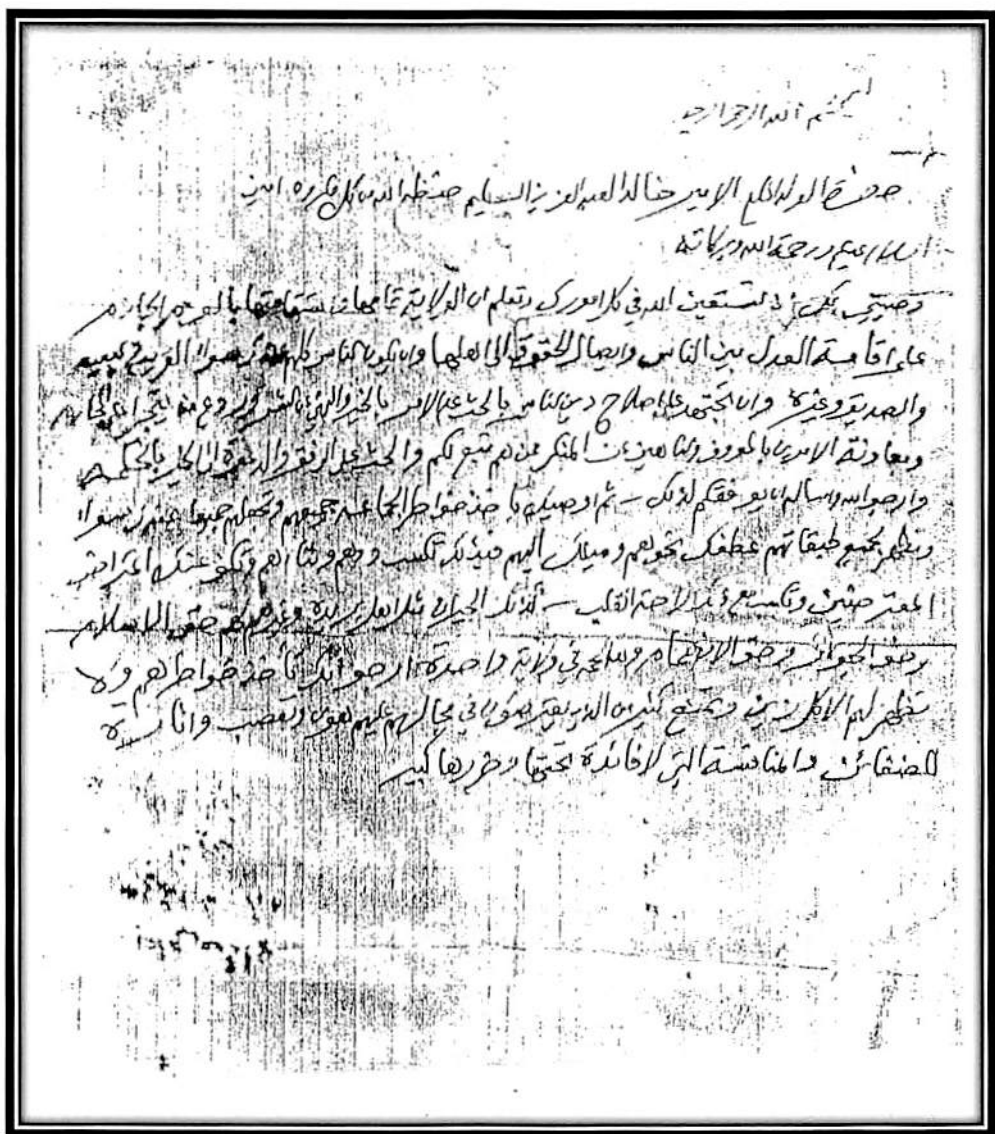 بسم الله الرحمن الرحيم
حضرة الولد المكرم الامير خالد العبد العزيز السليم حفظه الله من كل مكروه امين
السلام عليكم ورحمة الله وبركاته
وصيتي لك ان تستعين الله في كل امورك وتعلم ان الولاية
على اقامة العدل بين الناس وايصال الحقوق الى اهلها وان يكون الناس كلهم سواء القريب والبعيد
والصديق وغيره وان تجتهد على اصلاح دين الناس بالحث على الامر بالخير والنهي عن الشر
ومعاونة الامرين بالمعروف والناهين عن المنكر ممن هم تبع لكم والحث على الرفق والدعوة الى الخير بالحكمة
وارجو الله واساله ان يوفقكم لذلك ثم اوصيك باخذ خواطر الجماعة جميعهم وتجعلهم جميعا عندك سواء
وتظهر لجميع طبقاتهم عطفك نحوهم وميلك اليهم فبذلك تكسب ودهم وثناءهم وتكف عنك اعتراض
المعترضين وتكسب مع ذلك راحة القلب كذلك الجيران مثل اهل بريدة وغيرهم لهم حق الاسلام
وحق الجوار وحق الانضمام في ولاية واحدة ارجو انك تاخذ خواطرهم ولا
تظهر لهم الا كل زين وتمنع كثير من الذين في مجالسهم عليهم وتعصب واثارة
للضغائن والمنافسة التي لا فائدة تحتها وضررها كبير